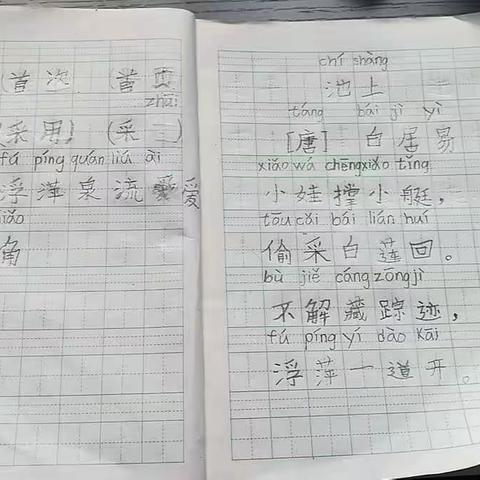 (首次 (首页
zhāi
(采用) (采二)
fú píng quán liú ài
浮萍泉流爱爱
jiǎo
角
chí shàng
池上
táng bái jū yì
[唐] 白居易
xiǎo wá chēng xiǎo tǐng
小娃撑小艇，
tōu cǎi bái lián huí
偷采白莲回。
bù jiě cáng zōng jì
不解藏踪迹，
fú píng yí dào kāi
浮萍一道开。